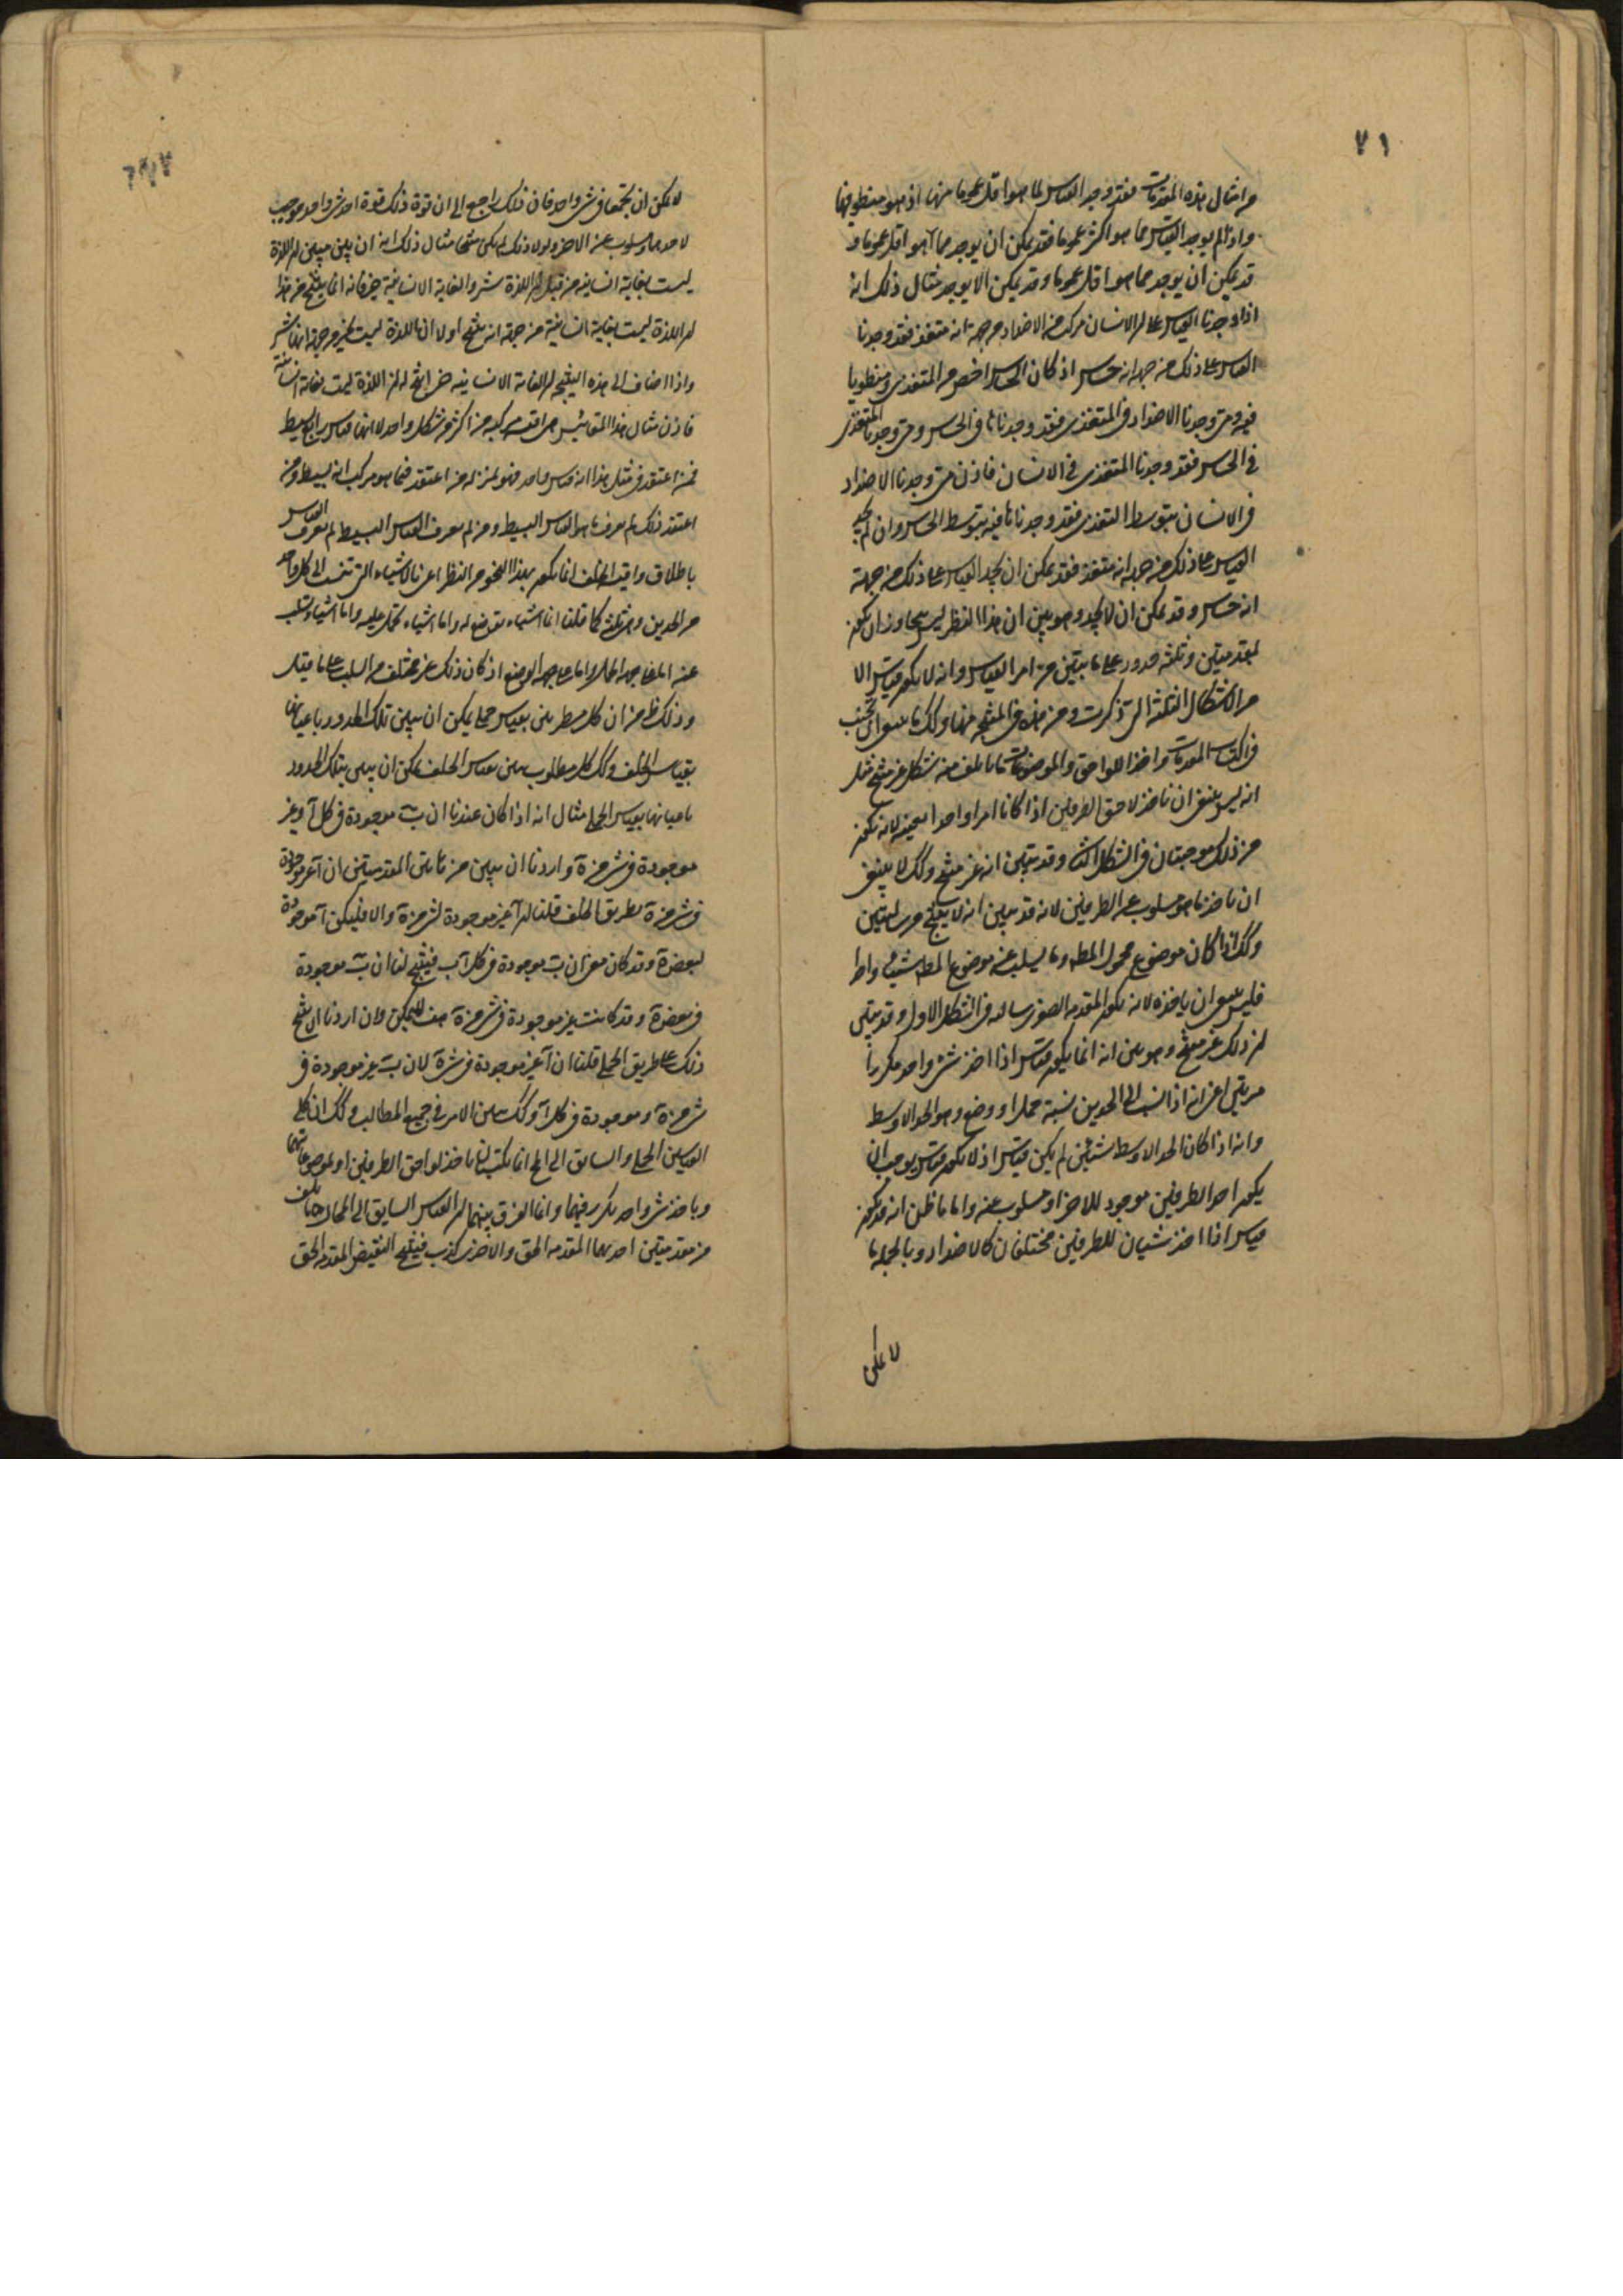 ٧١
من امثال هذه المقدمات فقد وجد القياس لما هو اقل عموما منها اذ هو منطو فيها
واذا لم يوجد القياس مما هو اكثر عموما فقد يمكن ان يوجد مما هو اقل عموما و
قد يمكن ان يوجد مما هو اقل عموما وقد يمكن الا يوجد مثال ذلك انه
اذا وجدنا القياس على ان الانسان مركب من الاضداد من جهة انه متغذ فقد وجدنا
القياس على ذلك من جهة انه حساس اذ كان الحساس اخص من المتغذي ومنطويا
فيه ومتى وجدنا الاضداد في المتغذي فقد وجدناها في الحساس ومتى وجدنا المتغذي
في الحساس فقد وجدنا المتغذي في الانسان فاذن متى وجدنا الاضداد
في الانسان بتوسط المتغذي فقد وجدناها فيه بتوسط الحساس وان لم نجد
القياس على ذلك من جهة انه متغذ فقد يمكن ان نجد القياس على ذلك من جهة
انه حساس وقد يمكن ان لا نجد وهو بين ان هذا النظر ليس يتجاوز ان يكون
بمقدمتين وثلثة حدود على ما تبين من امر القياس وانه لا يكون قياس الا
من الاشكال الثلثة التي ذكرت ومن هذه في المنتجة منها وكك ما ينبغي ان نجتنب
في اكتساب المقدمات واخذ اللواحق والموضوعات ما تألف منه شكل غير منتج مثل
انه ليس ينبغي ان ناخذ لاحق الطرفين اذا كانا امرا واحدا بعينه لانه يكون
من ذلك موجبتان في الشكل الثا وقد تبين انه غير منتج وكك لا ينبغي
ان ناخذ ما هو مسلوب عن الطرفين لانه قد تبين انه لا ينتج من سالبتين
وكك اذا كان موضوع محمول المط وما يسلب عنه موضوع المط شيئا واحدا
فليس ينبغي ان ياخذه لانه يكون المقدمة الصغرى سالبة في الشكل الاول وقد تبين
ان ذلك غير منتج وهو بين انه انما يكون قياس اذا اخذ شئ واحد مكررا
مرتين اعني انه اذا نسب الى الحدين نسبة حمل او وضع وهو الحد الاوسط
وانه اذا كان الحد الاوسط شيئين لم يكن قياس اذ لا يكون قياس يوجب ان
يكون احد الطرفين موجود للاخر او مسلوب عنه واما ما ظن انه قد يكون
قياس اذا اخذ شيئان للطرفين مختلفان كالاضداد وبالجملة ما
لا يمكن
لا يمكن ان يجتمعا في شئ واحد فان ذلك راجع الى ان قوة ذلك قوة اخذ شئ واحد موجب
لاحدهما ومسلوب عن الاخر ولولا ذلك لم يكن منتجا مثال ذلك انه ان بين مبين ان اللذة
ليست بغاية انسانية من قبل ان اللذة شر والغاية الانسانية خير فانه انما ينتج من هذا
ان اللذة ليست بغاية انسانية من جهة انه ينتج اولا ان اللذة ليست بخير من جهة انها شر
واذا اضاف الى هذه النتيجة ان الغاية الانسانية خير انتج له ان اللذة ليست بغاية انسانية
فاذن مثال هذا المقائيس هي اقيسة مركبة من اكثر من شكل واحد لا انها قياس رابع بسيط
فمن اعتقد في مثل هذا انه قياس واحد فهو بمنزلة من اعتقد فيما هو مركب انه بسيط ومن
اعتقد ذلك لم يعرف ما هو القياس البسيط ومن لم يعرف القياس البسيط لم يعرف القياس
باطلاق واقيسة الخلف انما يكون بهذا النحو من النظر اعني بالاشياء التي تنسب الى كل واحد
من الحدين وهي ثلثة كما قلنا اما اشياء توضع له واما اشياء تحمل عليه واما اشياء تسلب
عنه اما على جهة الحمل واما على جهة الوضع اذ كان ذلك غير مختلف في السلب على ما قيل
وذلك ظ من ان كل مط يبين بقياس حملي يمكن ان يبين تلك الحدود باعيانها
بقياس الخلف وكك كل مطلوب يبين بقياس الخلف يمكن ان يبين بتلك الحدود
باعيانها بقياس الحملي مثال انه اذا كان عندنا ان ب موجودة في كل آ وغير
موجودة في شئ من ه واردنا ان يبين من هاتين المقدمتين ان آ غير موجودة
في شئ من ه بطريق الخلف قلنا ان آ غير موجودة لشئ من ه والا فليكن آ موجودة
لبعض ه وقد كان معنا ان ب موجودة في كل آ ب فينتج لنا ان ب موجودة
في بعض ه وقد كانت غير موجودة في شئ من ه هف لا يمكن وان اردنا ان ينتج
ذلك على طريق الحملي قلنا ان آ غير موجودة في شئ ه لان ب غير موجودة في
شئ من ه وموجودة في كل آ وكك يبين الامر في جميع المطالب وكك ان كلي
القياسين الحملي والسايق الى الح انما يكتسبان باخذ لواحق الطرفين او موضوعاتهما
وباخذ شئ واحد يكرر فيهما وانما الفرق بينهما ان القياس السايق الى المحال هنا يالف
من مقدمتين احدهما المقدمة الحق والاخرى كذب فينتج النقيض المقدمة الحق